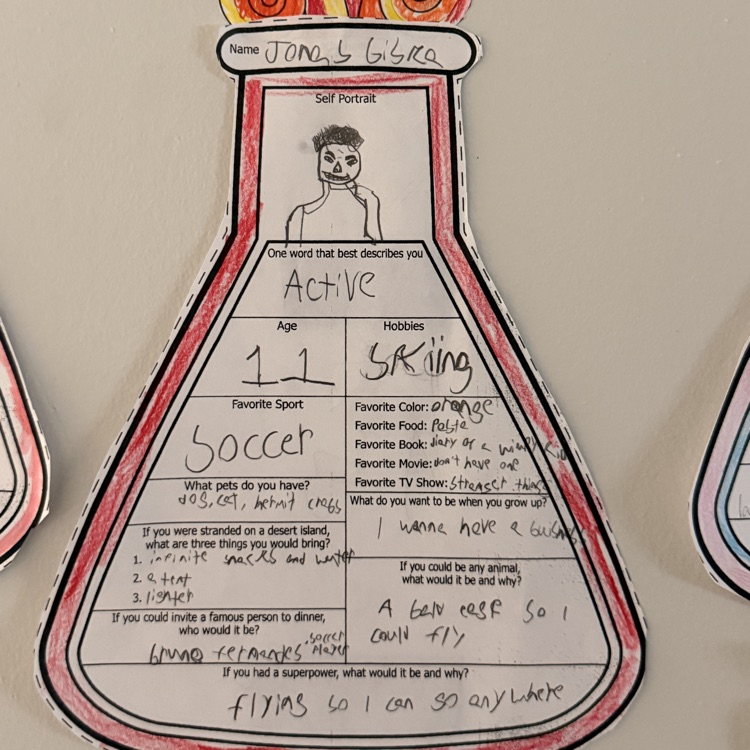 Name Jonas
Self Portrait
One word that best describes you
Active
Age
11
Hobbies
Skiing
Favorite Sport
Soccer
Favorite Color: orange
Favorite Food: Pasta
Favorite Book: diary of a wimpy kid
Favorite Movie: don't have one
Favorite TV Show: stranger things
What pets do you have?
dog, cat, hermit crabs
What do you want to be when you grow up?
I wanna have a business
If you were stranded on a desert island,
what are three things you would bring?
1. infinite snacks and water
2. a tent
3. lighter
If you could be any animal,
what would it be and why?
A bald so I
could fly
If you could invite a famous person to dinner,
who would it be?
bruno fernandes soccer player
If you had a superpower, what would it be and why?
flying so I can go anywhere